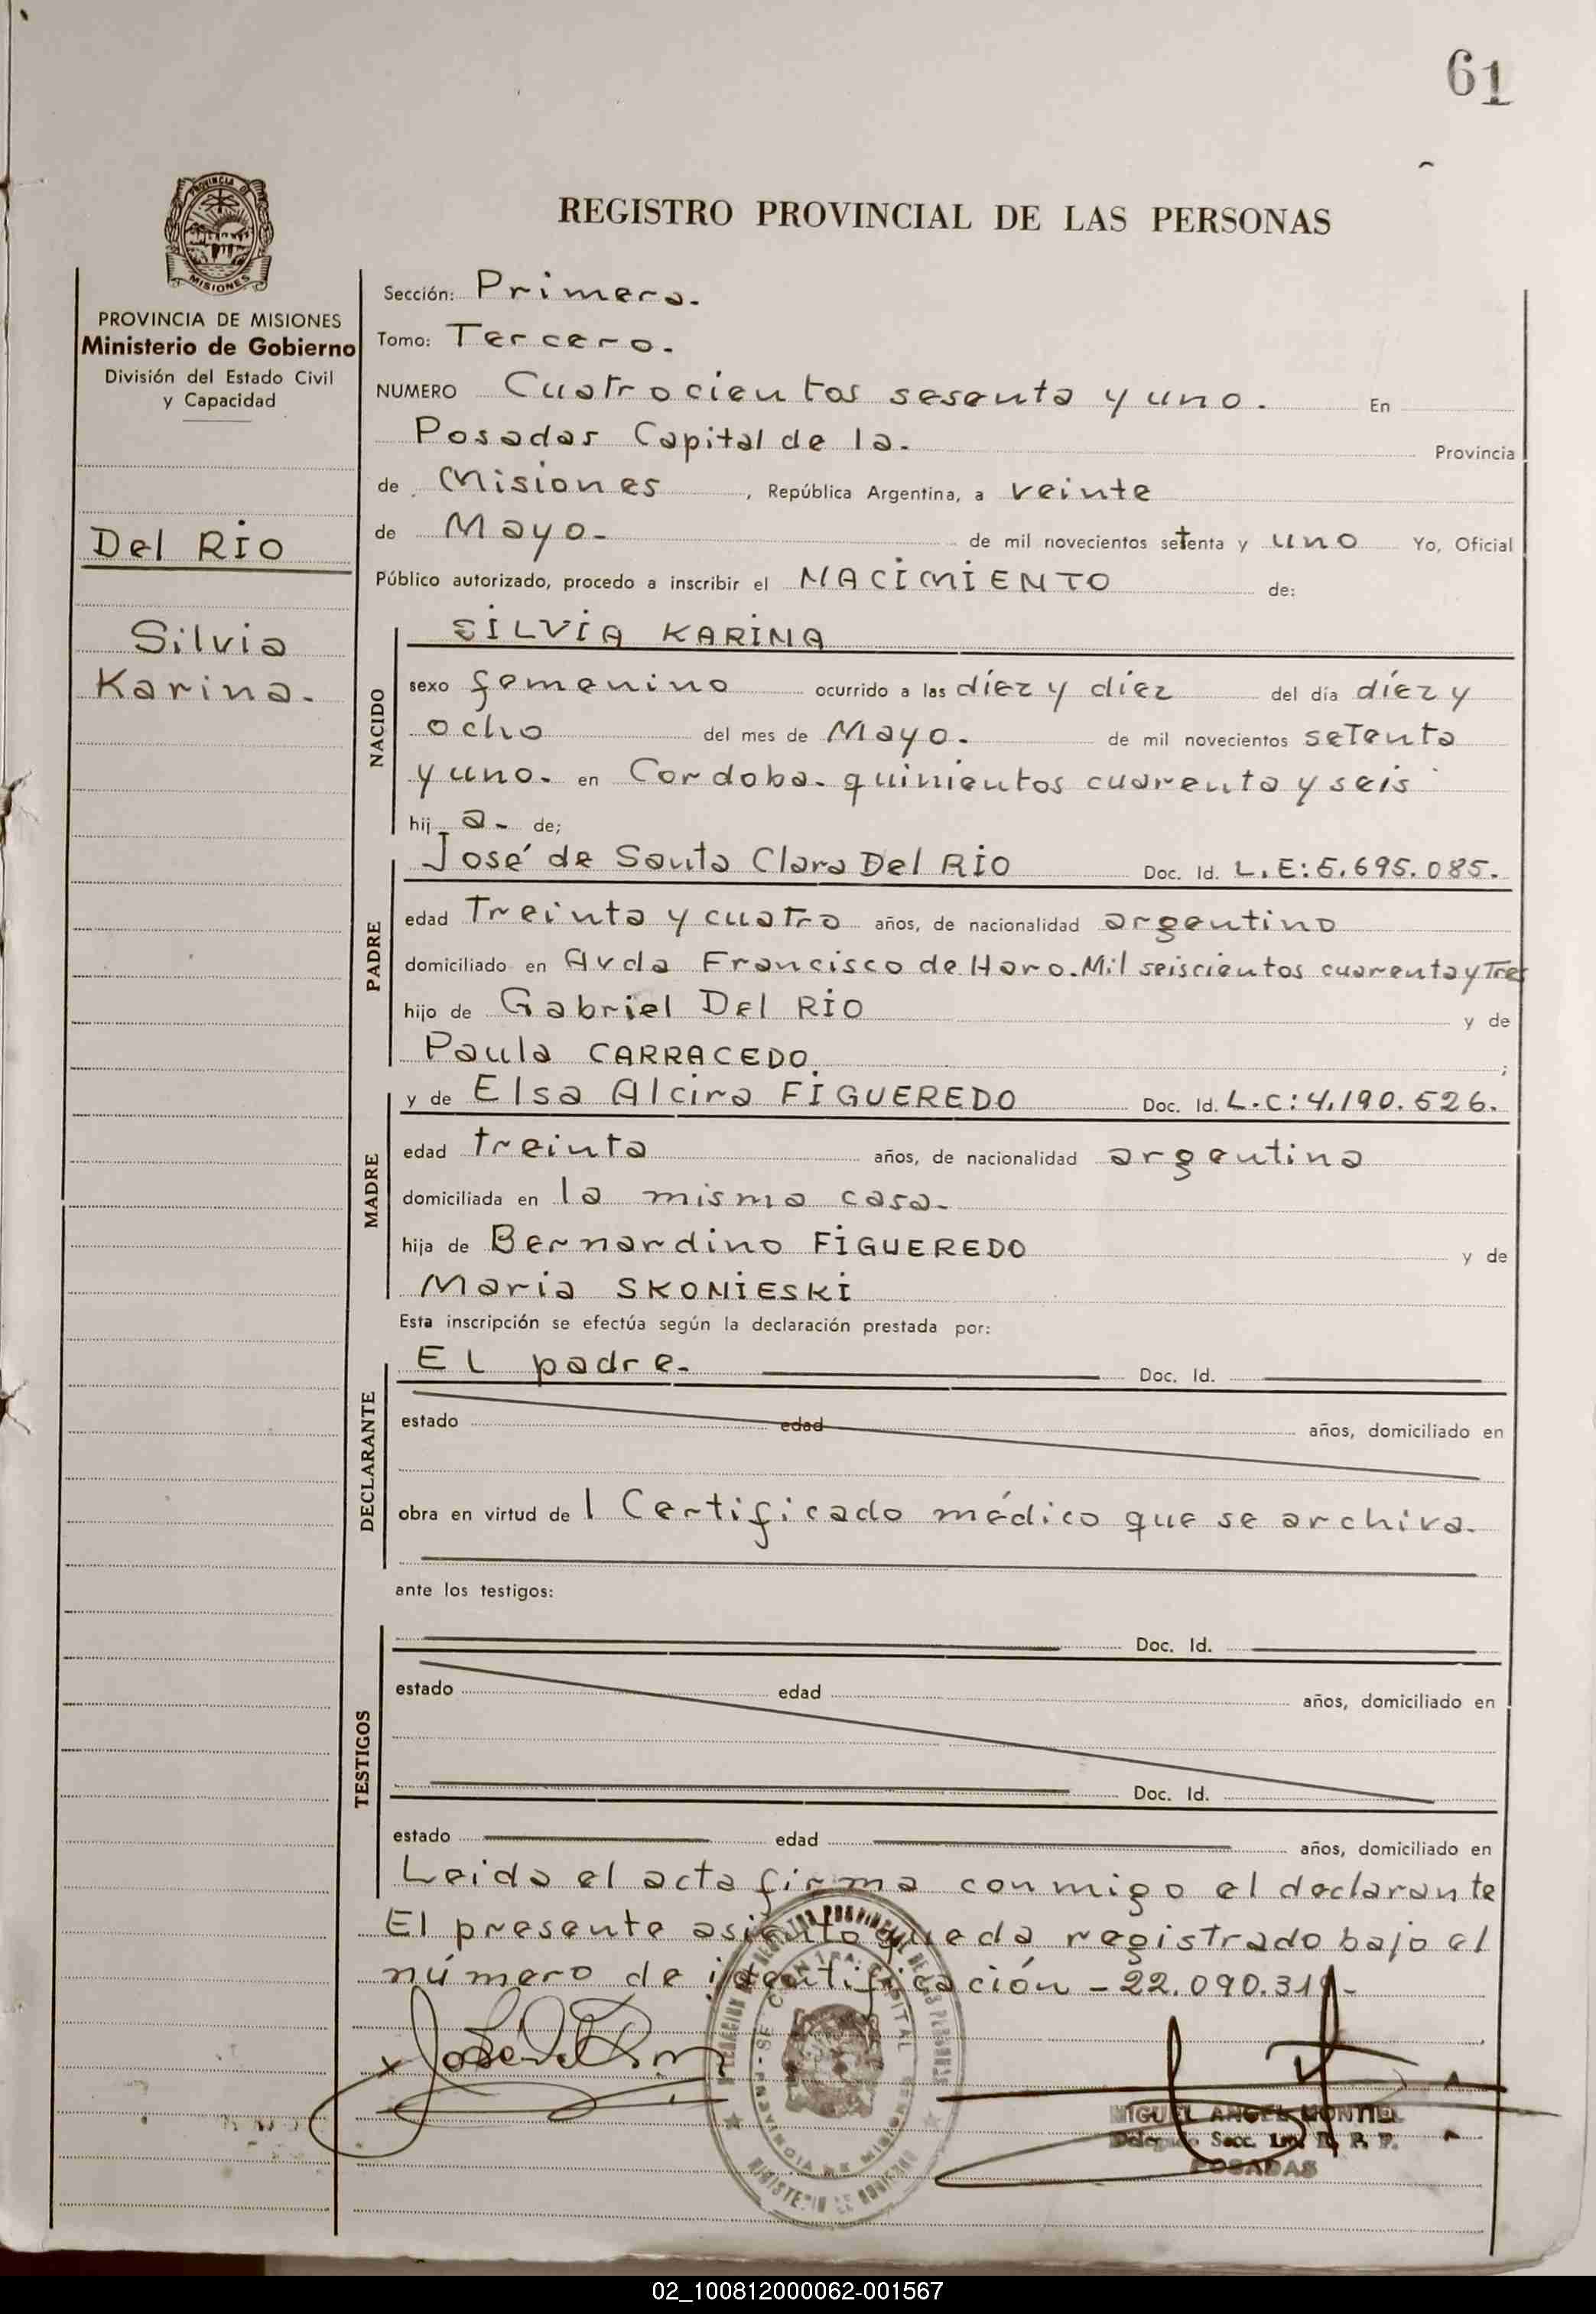 61
REGISTRO PROVINCIAL DE LAS PERSONAS
PROVINCIA DE MISIONES
PROVINCIA DE MISIONES
Ministerio de Gobierno
División del Estado Civil
y Capacidad
Del RIO
Silvia
Karina.
Sección: Primera.
Tomo: Tercero.
NUMERO Cuatrocientos sesenta y uno. En
Posadas Capital de la. Provincia
de Misiones, República Argentina, a veinte
de Mayo- de mil novecientos setenta y uno Yo, Oficial
Público autorizado, procedo a inscribir el NACIMIENTO de:
NACIDO
SILVIA KARINA
sexo femenino ocurrido a las diez y diez del día diez y
ocho del mes de Mayo. de mil novecientos setenta
y uno. en Cordoba. quinientos cuarenta y seis
hij a- de;
PADRE
José de Santa Clara Del RIO Doc. Id. L.E:5.695.085.
edad Treinta y cuatro años, de nacionalidad argentino
domiciliado en Avda Francisco de Haro. Mil seiscientos cuarenta y Tres
hijo de Gabriel Del RIO y de
Paula CARRACEDO ;
MADRE
y de Elsa Alcira FIGUEREDO Doc. Id. L.C:4.190.526.
edad treinta años, de nacionalidad argentina
domiciliada en la misma casa-
hija de Bernardino FIGUEREDO y de
Maria SKONIESKI
Esta inscripción se efectúa según la declaración prestada por:
DECLARANTE
El padre- Doc. Id.
estado edad años, domiciliado en
obra en virtud de l Certificado médico que se archiva.
ante los testigos:
TESTIGOS
Doc. Id.
estado edad años, domiciliado en
Doc. Id.
estado edad años, domiciliado en
Leida el acta firma conmigo el declarante
El presente asiento queda registrado bajo el
número de identificación - 22.090.319-
MIGUEL ANGEL MONTIEL
Secc. R. P. P.
POSADAS
02_100812000062-001567